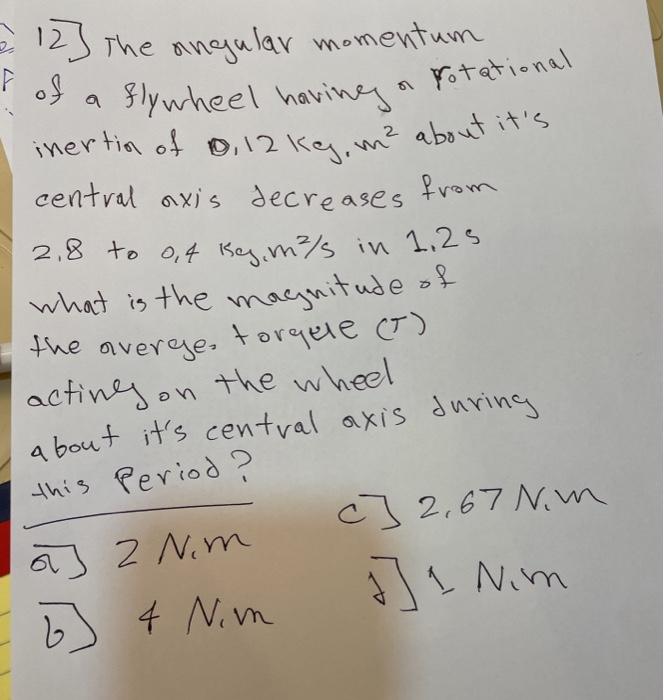 12] The angular momentum
of a flywheel having a rotational
inertia of 0,12 Kg.m² about it's
central axis decreases from
2,8 to 0,4 Kg.m²/s in 1.2s
what is the magnitude of
the averge. torque (T)
acting on the wheel
about it's central axis during
this Period?
a] 2 N.m
c] 2,67 N.m
b] 4 N.m
d] 1 N.m